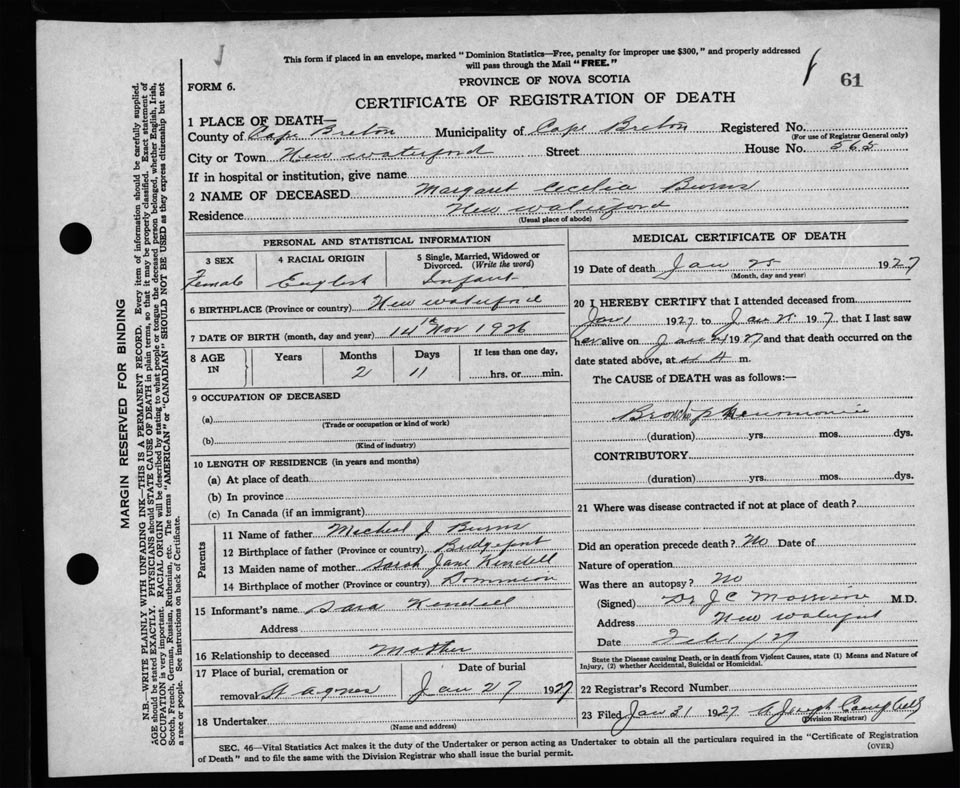 This form if placed in an envelope, marked "Dominion Statistics—Free, penalty for improper use $300," and properly addressed
will pass through the Mail "FREE."
FORM 6.
PROVINCE OF NOVA SCOTIA
61
CERTIFICATE OF REGISTRATION OF DEATH
1 PLACE OF DEATH—
County of Cape Breton Municipality of Cape Breton Registered No.
(For use of Registrar General only)
City or Town New Waterford Street House No. 565
If in hospital or institution, give name
2 NAME OF DECEASED Margaret Cecelia Burns
Residence New Waterford
(Usual place of abode)
PERSONAL AND STATISTICAL INFORMATION
3 SEX 4 RACIAL ORIGIN 5 Single, Married, Widowed or
Divorced. (Write the word)
Female English Infant
6 BIRTHPLACE (Province or country) New Waterford
7 DATE OF BIRTH (month, day and year) 14th Nov 1926
8 AGE IN Years Months Days If less than one day,
2 11 hrs. or min.
9 OCCUPATION OF DECEASED
(a)
(Trade or occupation or kind of work)
(b)
(Kind of industry)
10 LENGTH OF RESIDENCE (in years and months)
(a) At place of death
(b) In province
(c) In Canada (if an immigrant)
Parents
11 Name of father Micheal J Burns
12 Birthplace of father (Province or country) Bridgeport
13 Maiden name of mother Sarah Jane Kendell
14 Birthplace of mother (Province or country) Dominion
15 Informant's name Sara Kendell
Address
16 Relationship to deceased Mother
17 Place of burial, cremation or Date of burial
removal St Agnes Jan 27 1927
18 Undertaker
(Name and address)
MEDICAL CERTIFICATE OF DEATH
19 Date of death Jan 25 1927
(Month, day and year)
20 I HEREBY CERTIFY that I attended deceased from
Jan 1 1927 to Jan 25 1927 that I last saw
her alive on Jan 24 1927 and that death occurred on the
date stated above, at 4 m.
The CAUSE of DEATH was as follows:—
Broncho pneumonia
(duration) yrs. mos. dys.
CONTRIBUTORY
(duration) yrs. mos. dys.
21 Where was disease contracted if not at place of death?
Did an operation precede death? No Date of
Nature of operation
Was there an autopsy? No
(Signed) Dr J C Morrison M.D.
Address New Waterford
Date Feb 1/27
State the Disease causing Death, or in death from Violent Causes, state (1) Means and Nature of
Injury, (2) whether Accidental, Suicidal or Homicidal.
22 Registrar's Record Number
23 Filed Jan 31 1927 A Joseph Campbell
(Division Registrar)
SEC. 46—Vital Statistics Act makes it the duty of the Undertaker or person acting as Undertaker to obtain all the particulars required in the "Certificate of Registration
of Death" and to file the same with the Division Registrar who shall issue the burial permit.
(OVER)
MARGIN RESERVED FOR BINDING
N.B.—WRITE PLAINLY WITH UNFADING INK—THIS IS A PERMANENT RECORD. Every item of information should be carefully supplied.
AGE should be stated EXACTLY. PHYSICIANS should STATE CAUSE OF DEATH in plain terms, so that it may be properly classified. Exact statement of
OCCUPATION is very important. RACIAL ORIGIN will be described by stating to what people or tongue the deceased person belonged, whether English, Irish,
Scotch, French, German, Russian, Ruthenian, etc. The terms "AMERICAN" or "CANADIAN" SHOULD NOT BE USED as they express citizenship but not
a race or people. See instructions on back of Certificate.